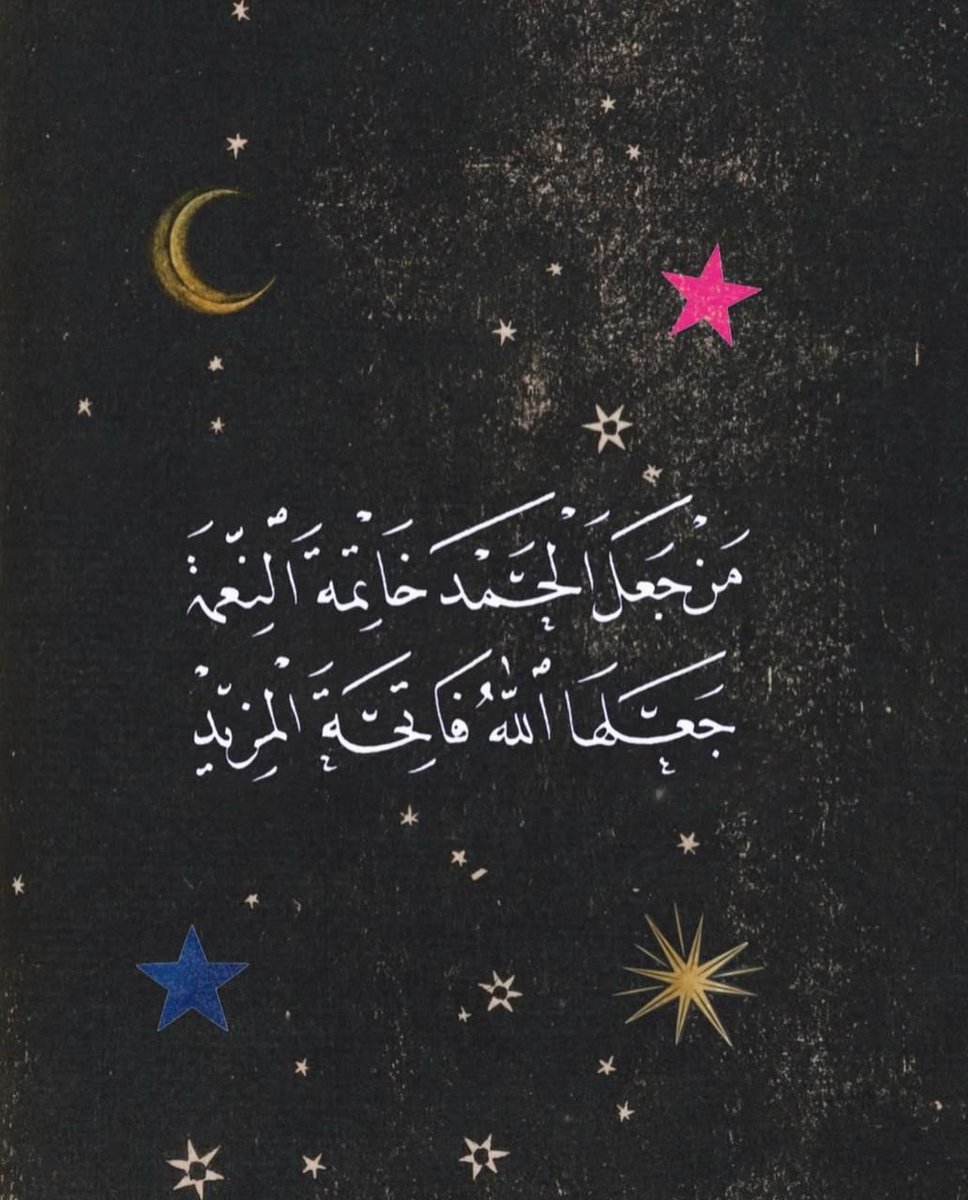 مَنْ جَعَلَ الْحَمْدَ خَاتِمَةَ النِّعْمَةِ
جَعَلَهَا ٱللَّهُ فَاتِحَةَ الْمَزِيدِ